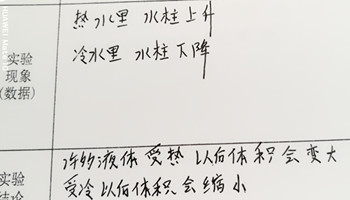 热水里 水柱上升
冷水里 水柱下降
实验
现象
(数据)
受热以后体积会变大
受冷以后体积会缩小
实验
结论